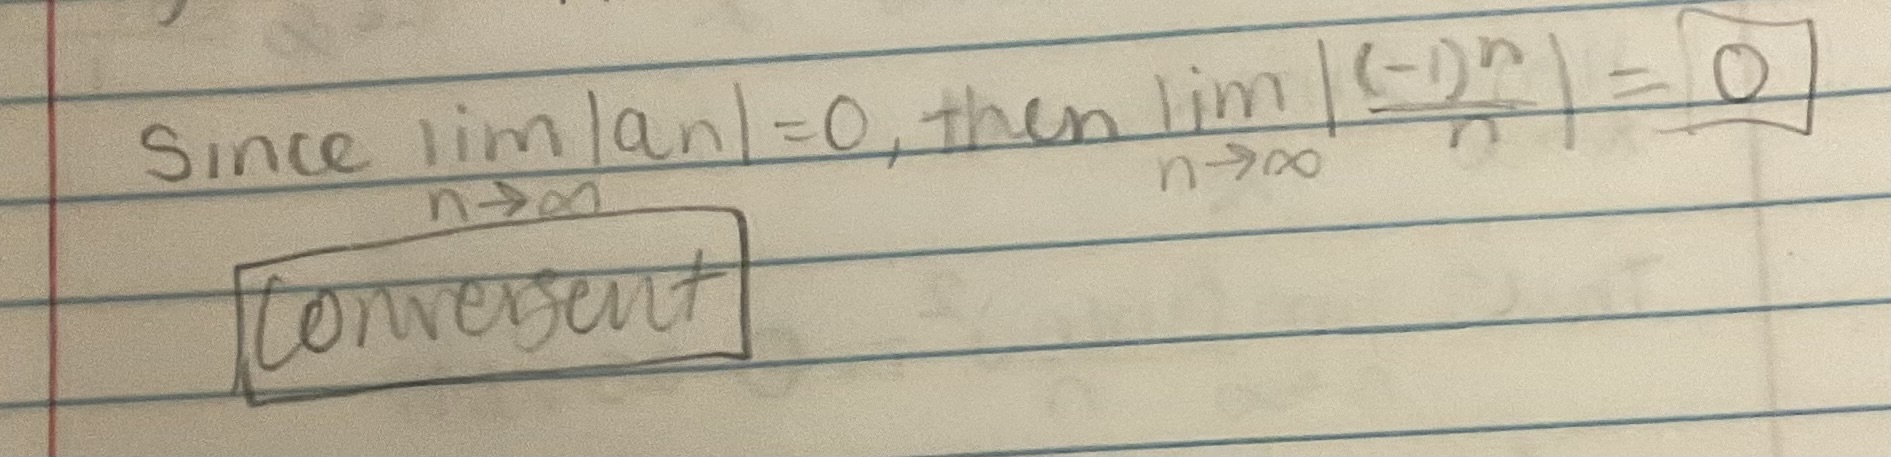 Since lim |an| = 0, then lim |(-1)^n / n| = 0
n→∞ n→∞
Convergent